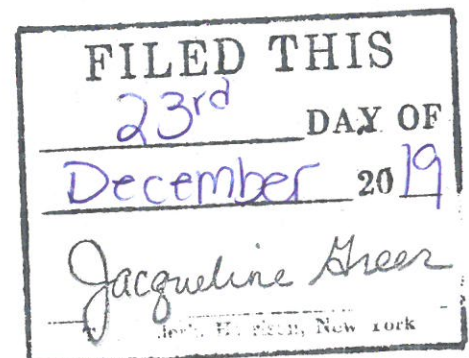 FILED THIS
23rd DAY OF
December 2019
Jacqueline Greer
New York